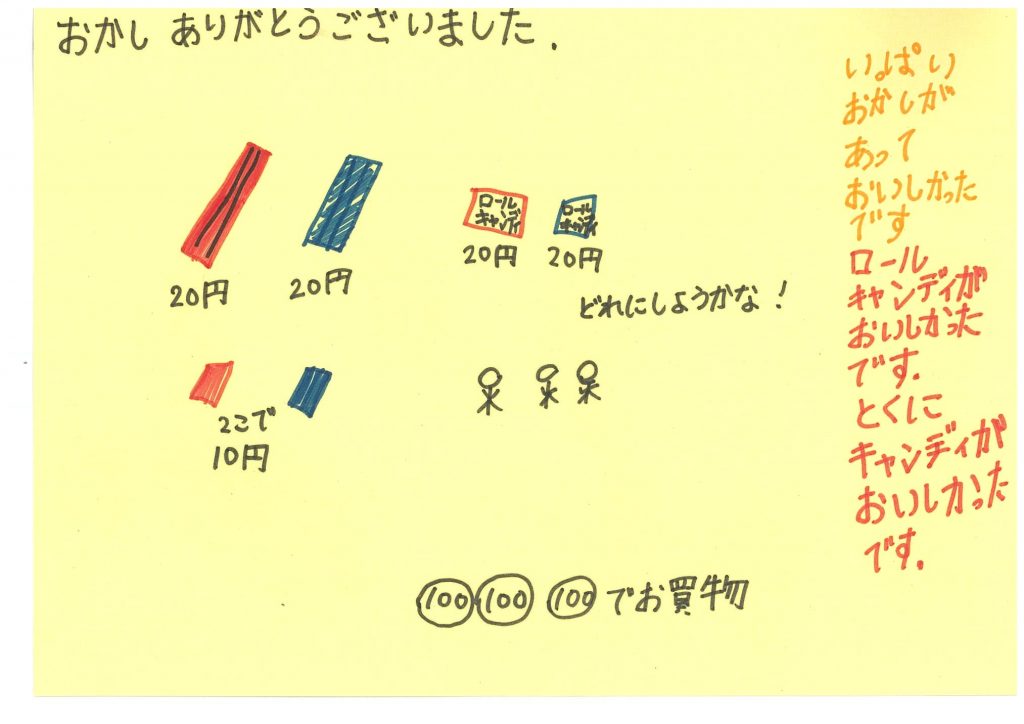 おかし ありがとうございました.
20円
20円
ロール
キャンディ
20円
ロール
キャンディ
20円
どれにしようかな！
2こで
10円
100 100 100 でお買物
いっぱい
おかしが
あって
おいしかった
です
ロール
キャンディが
おいしかった
です.
とくに
キャンディが
おいしかった
です.